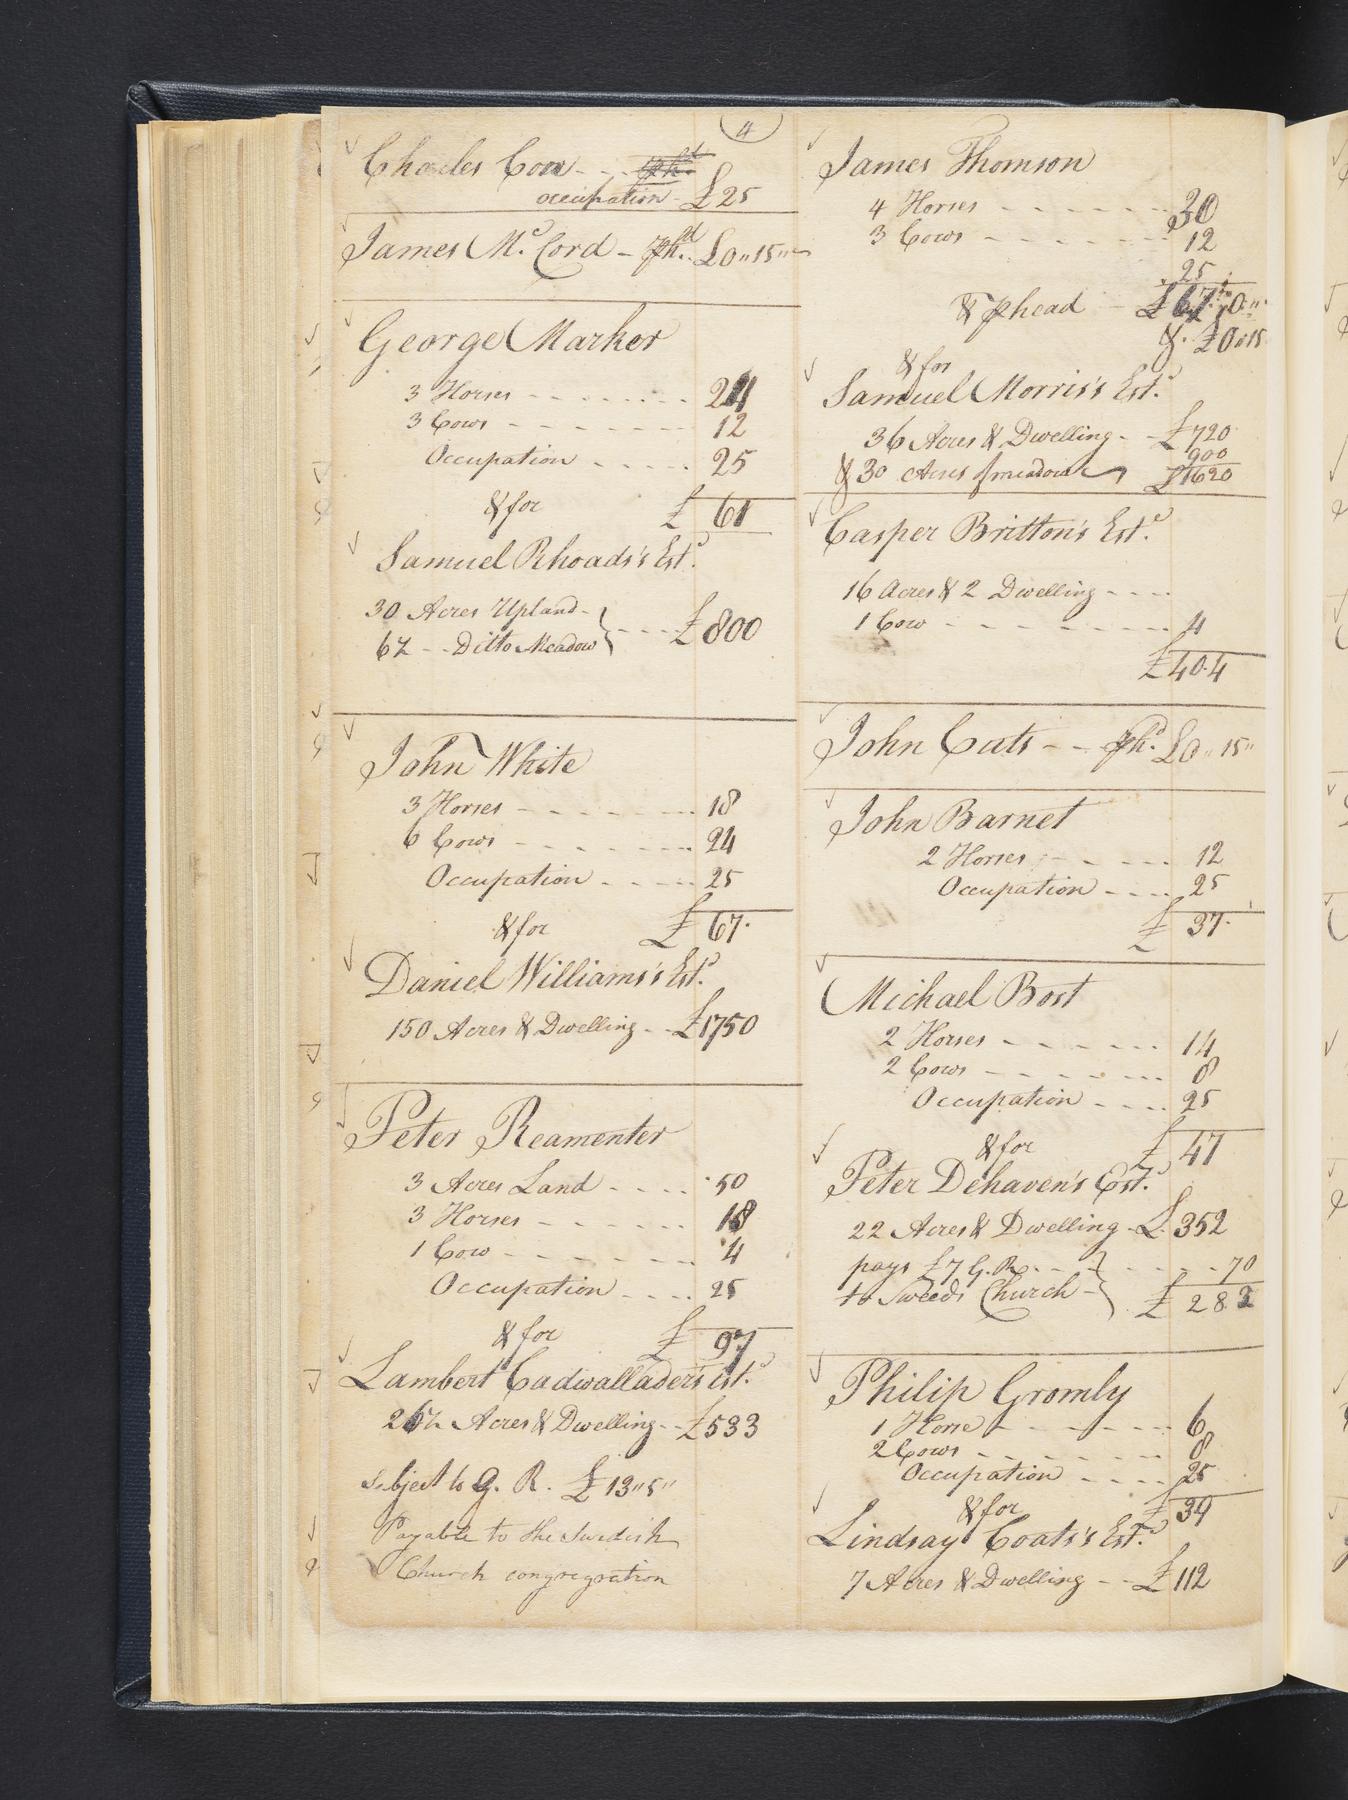 4
Charles Coxe - - p hd.
occupation - £25
James Mc. Cord - p hd. £0"15"
George Marker
3 Horses - - - - 24
3 Cows - - - - 12
Occupation - - - - 25
& for £ 61
Samuel Rhoads's Estd.
30 Acres Upland -
62 - - Ditto Meadow } - - - £800
John White
3 Horses - - - - 18
6 Cows - - - - 24
Occupation - - - - 25
& for £ 67.
Daniel Williams's Estd.
150 Acres & Dwelling - - £1750
Peter Reamenter
3 Acres Land - - - - 50
3 Horses - - - - 18
1 Cow - - - - 4
Occupation - - - - 25
& for £ 97
Lambert Cadwallader's Estd.
Acres & Dwelling - - £533
subject to G. R. £13"5"
Payable to the Swedish
Church congregation
James Thomson
4 Horses - - - - 30
3 Cows - - - - 12
25
& p head - £67 "0"
&. £0"15
& for
Samuel Morris's Estd.
36 Acres & Dwelling - - £720
900
& 30 Acres of meadow £1620
Casper Britton's Estd.
16 Acres & 2 Dwelling - - - -
1 Cow - - - - 4
£404
John Cuts - - p hd. £0"15"
John Barnet
2 Horses - - - - 12
Occupation - - - - 25
£ 37.
Michael Bost
2 Horses - - - - 14
2 Cows - - - - 8
Occupation - - - - 25
& for £ 47
Peter Dehaven's Estd.
22 Acres & Dwelling - £ 352
pays £7 G. R. - - } - - - - 70
to Sweeds Church - } £ 282
Philip Gromly
1 Horse - - - - 6
2 Cows - - - - 8
Occupation - - - - 25
& for £ 39
Lindsay Coats's Estd.
7 Acres & Dwelling - - £112